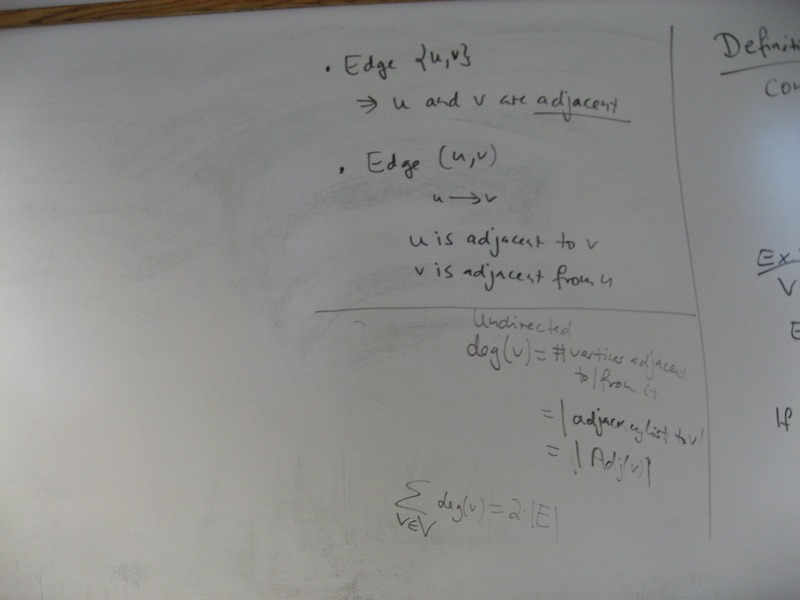 • Edge {u,v}
⇒ u and v are adjacent
• Edge (u,v)
u → v
u is adjacent to v
v is adjacent from u
Undirected
deg(v) = # vertices adjacent
to/from it
= | adjacency list to v|
= |Adj(v)|
∑ deg(v) = 2·|E|
v∈V
Definiti
Con
Ex:
V
E
If